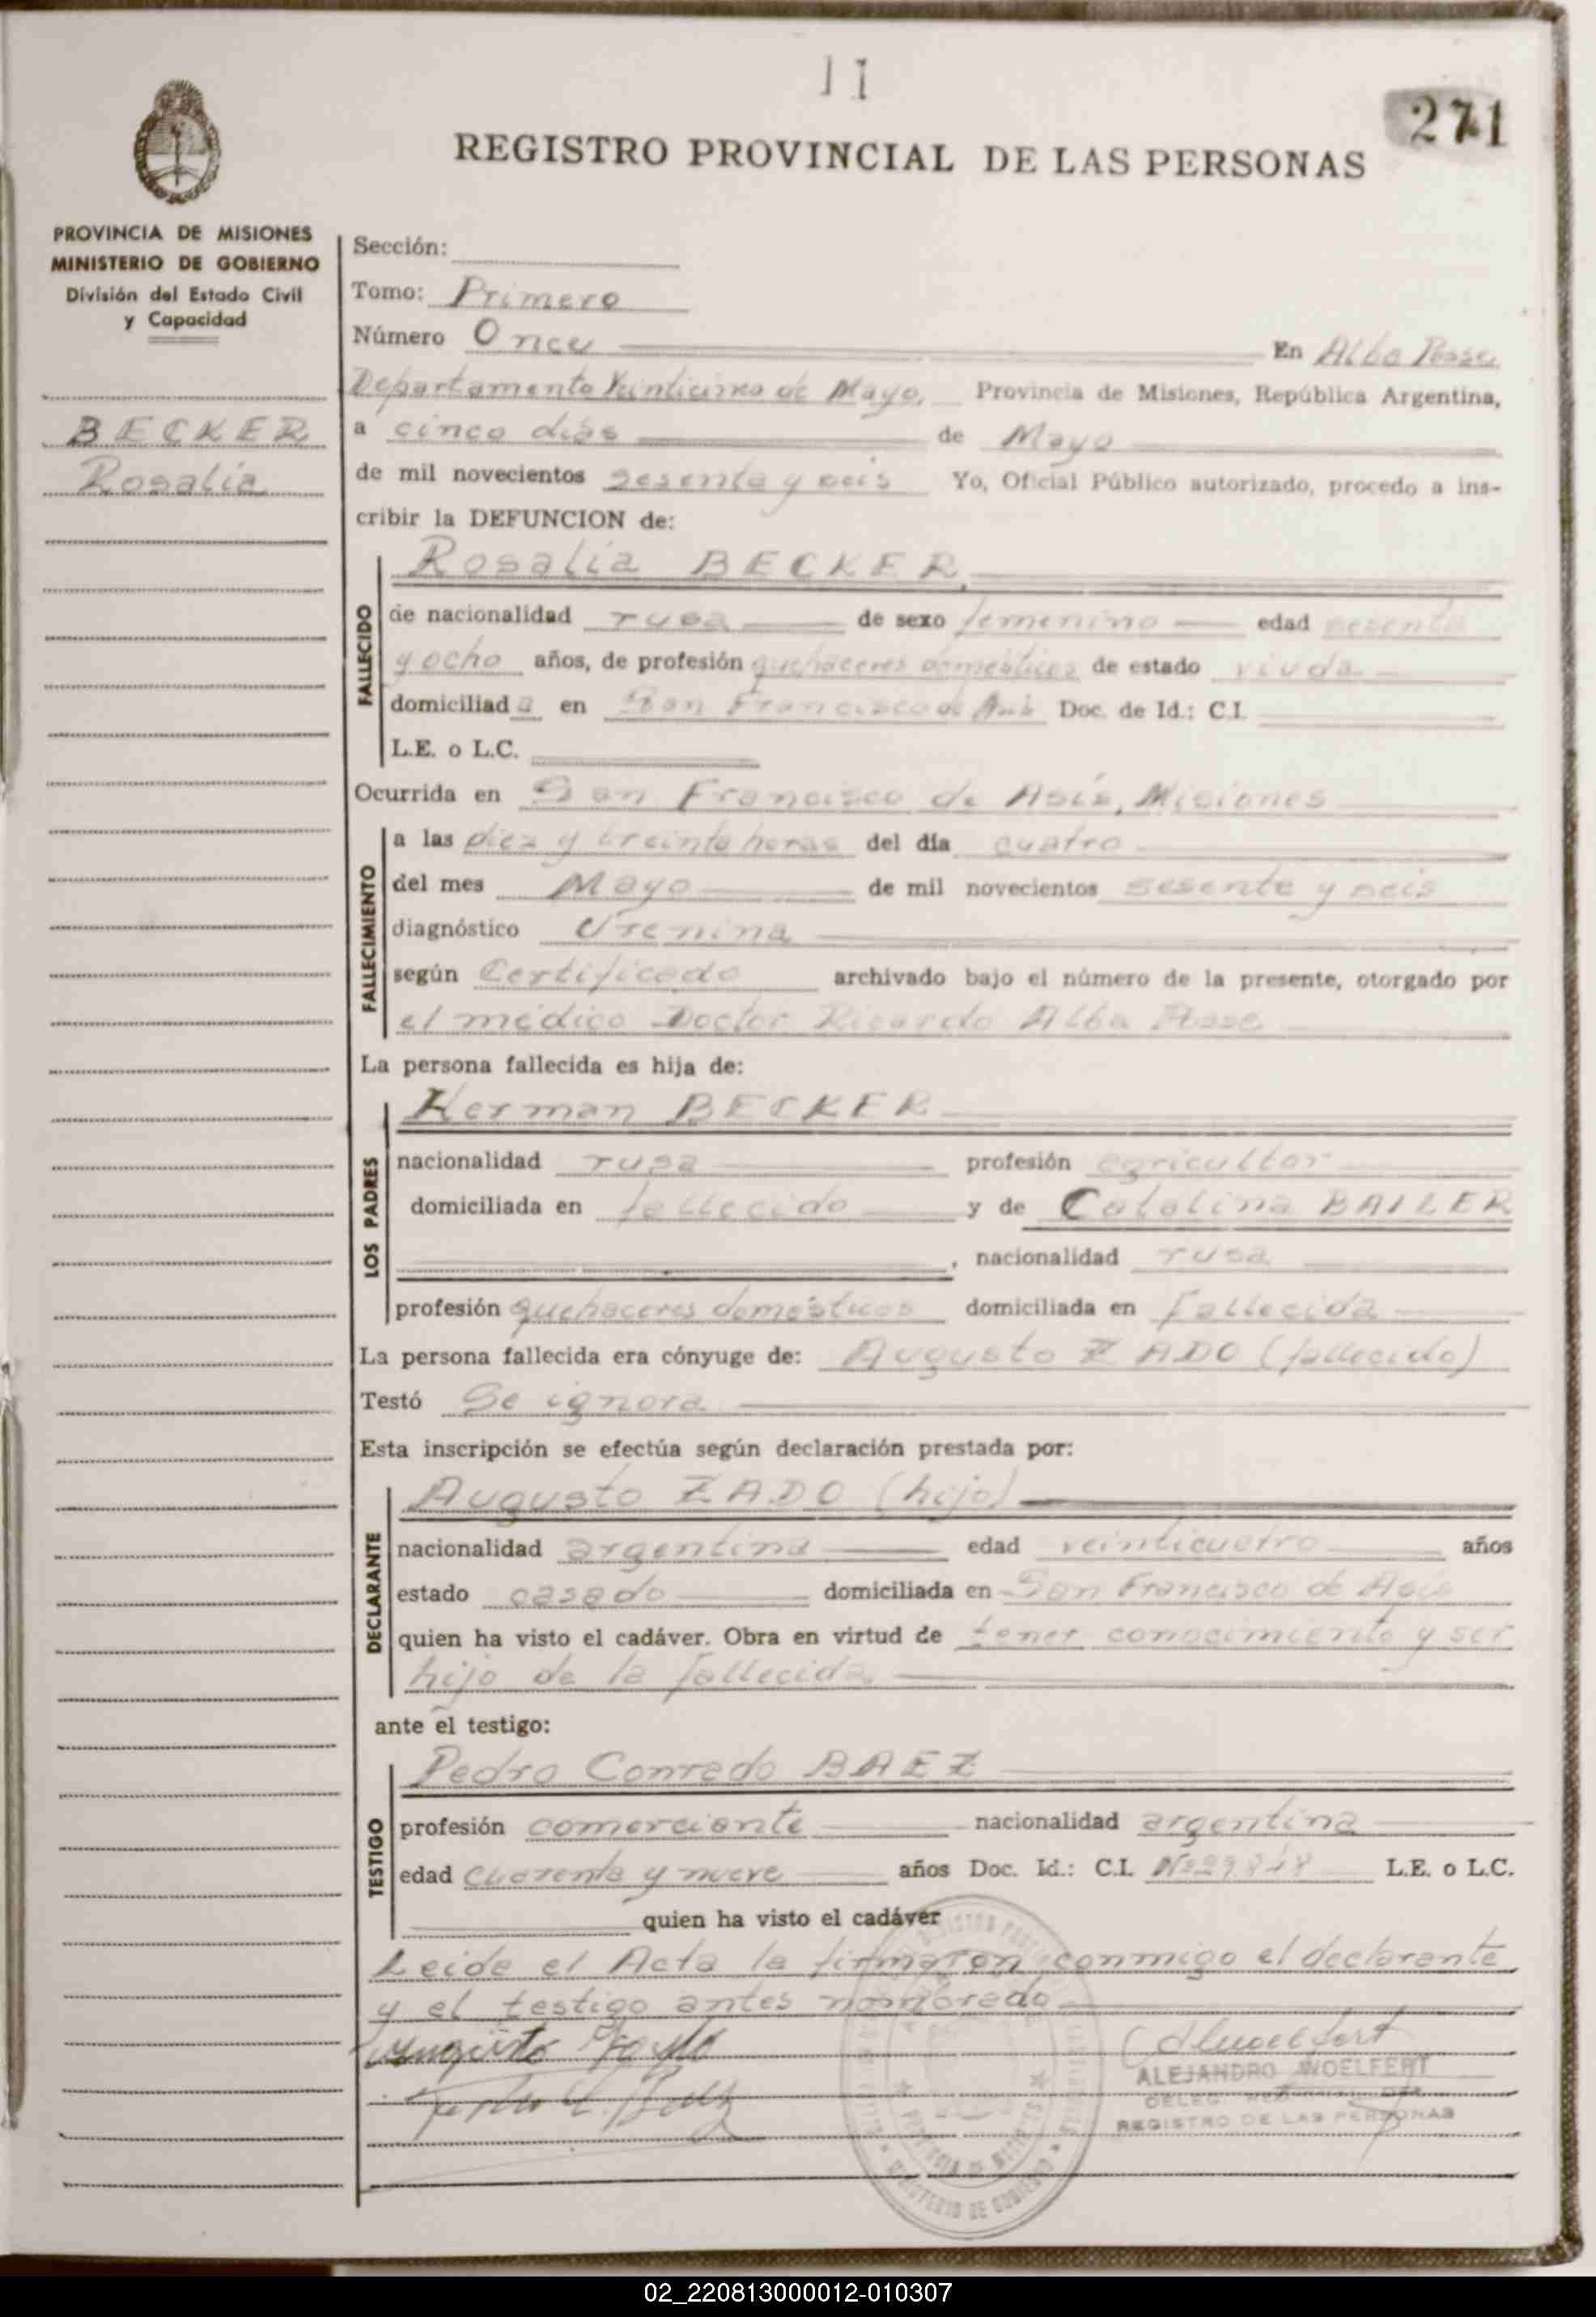 11
271
REGISTRO PROVINCIAL DE LAS PERSONAS
PROVINCIA DE MISIONES
MINISTERIO DE GOBIERNO
División del Estado Civil
y Capacidad
BECKER
Rosalia
Sección:
Tomo: Primero
Número Once En Alba Posse
Departamento Veinticinco de Mayo, Provincia de Misiones, República Argentina,
a cinco dias de Mayo
de mil novecientos sesenta y seis Yo, Oficial Público autorizado, procedo a ins-
cribir la DEFUNCION de:
FALLECIDO
Rosalia BECKER
de nacionalidad rusa de sexo femenino edad sesenta
y ocho años, de profesión quehaceres domésticos de estado viuda
domiciliada en San Francisco de Asis Doc. de Id.: C.I.
L.E. o L.C.
Ocurrida en San Francisco de Asís, Misiones
FALLECIMIENTO
a las diez y treinta horas del día cuatro
del mes Mayo de mil novecientos sesenta y seis
diagnóstico Uremina
según Certificado archivado bajo el número de la presente, otorgado por
el médico Doctor Ricardo Alba Posse
La persona fallecida es hija de:
LOS PADRES
Herman BECKER
nacionalidad rusa profesión agricultor
domiciliada en fallecido y de Catalina BAILER
, nacionalidad rusa
profesión quehaceres domésticos domiciliada en fallecida
La persona fallecida era cónyuge de: Augusto ZADO (fallecido)
Testó Se ignora
Esta inscripción se efectúa según declaración prestada por:
DECLARANTE
Augusto ZADO (hijo)
nacionalidad argentina edad veinticuatro años
estado casado domiciliada en San Francisco de Asis
quien ha visto el cadáver. Obra en virtud de tener conocimiento y ser
hijo de la fallecida
ante el testigo:
TESTIGO
Pedro Conrado BAEZ
profesión comerciante nacionalidad argentina
edad cuarenta y nueve años Doc. Id.: C.I. Nº 29.848 L.E. o L.C.
quien ha visto el cadáver
Leida el Acta la firmaron conmigo el declarante
y el testigo antes nombrado
Augusto
ALEJANDRO WOELFERT
REGISTRO DE LAS PERSONAS
PROVINCIA DE MISIONES
MINISTERIO DE GOBIERNO
02_220813000012-010307